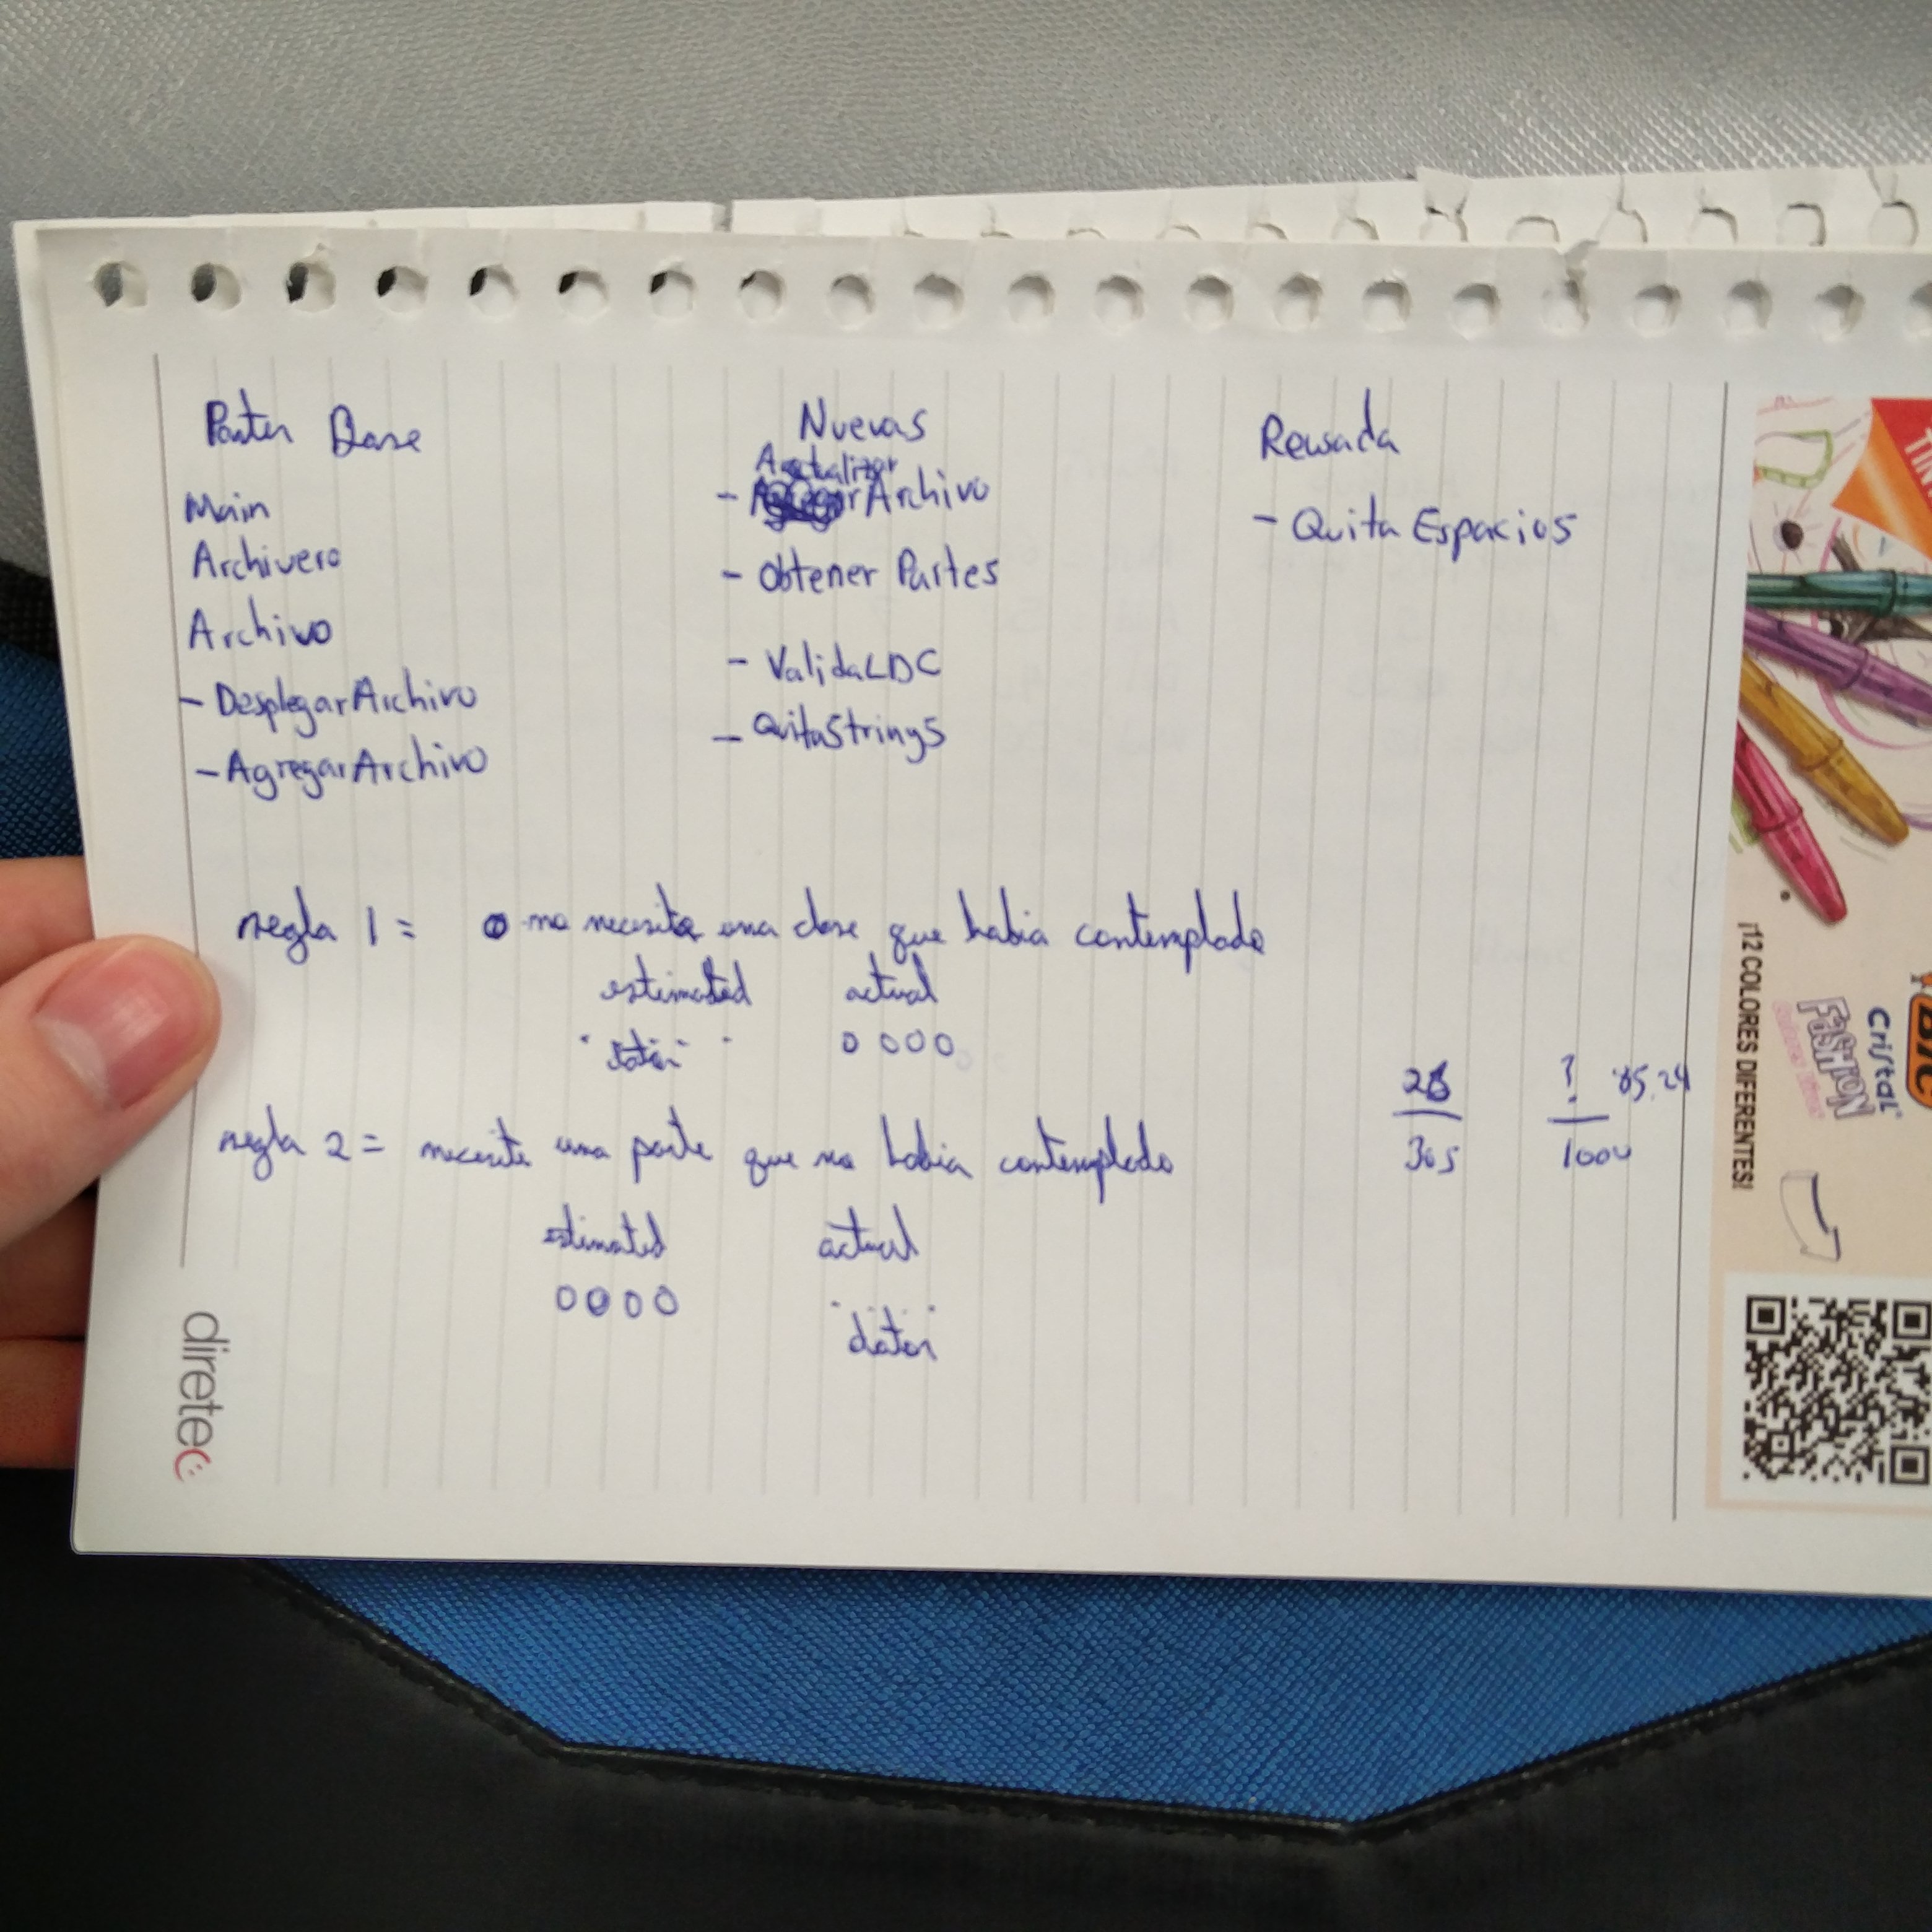 Partes Base
Main
Archivero
Archivo
- DesplegarArchivo
- AgregarArchivo
Nuevas
Actualizar
- Archivo
- Obtener Partes
- ValidaLDC
- QuitaStrings
Reusada
- Quita Espacios
regla 1 = no necesite una clase que habia contemplado
estimated actual
datos 0 0 0 0
regla 2 = necesite una parte que no habia contemplado
estimated actual
0 0 0 0 datos
26 ? 85.24
305 1000
diretec
¡12 COLORES DIFERENTES!
Cristal
FASHION
BIC